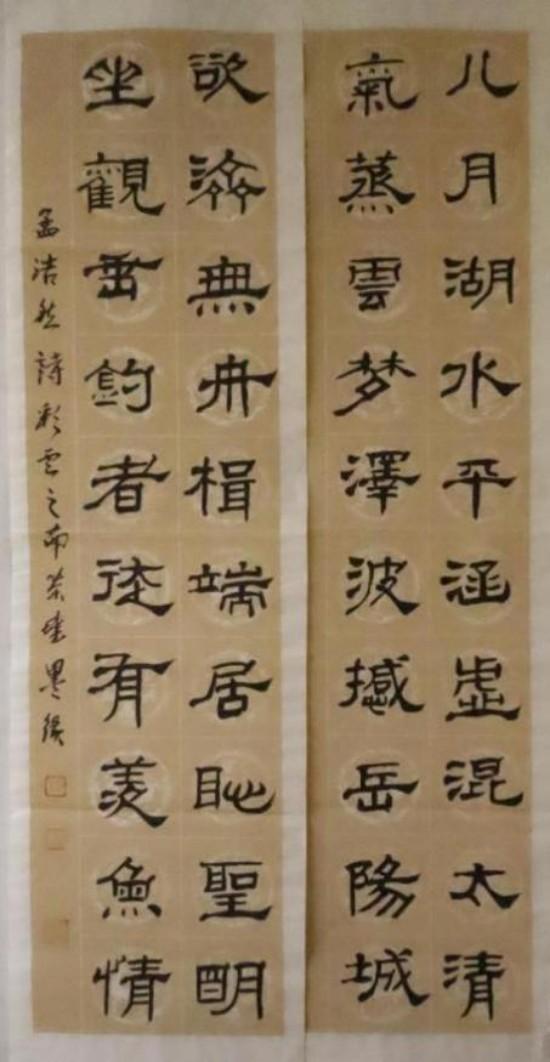 八月湖水平涵虛混太清
氣蒸雲梦澤波撼岳陽城
欲濟無舟楫端居恥聖明
坐觀垂釣者徒有羨魚情
孟浩然詩彩雲之南